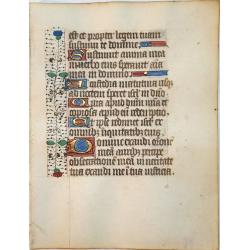 est et propter legem tuam
sustinui te domine
Sustinuit anima mea
in verbo eius speravit aīa
mea in domino
A custodia matutina usqz
ad noctem speret isrł in dn̄o
Quia apud dn̄m mīa et
copiosa apud eū redemptio
Et ipse redimet isrł ex
omnibz iniquitatibz eius
Domine exaudi orōnē
meā auribz percipe
obsecrationē meā in veritate
tua exaudi me ī tua iusticia